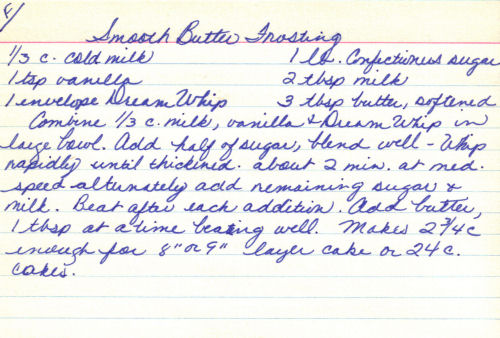 Smooth Butter Frosting
1/3 c. cold milk 1 lb. Confectioners sugar
1 tsp vanilla 2 tbsp milk
1 envelope Dream Whip 3 tbsp butter, softened
Combine 1/3 c. milk, vanilla & Dream Whip in
large bowl. Add half of sugar, blend well - Whip
rapidly until thickened. about 2 min. at med.
speed - altunately add remaining sugar &
milk. Beat after each addition. Add butter,
1 tbsp at a time beating well. Makes 2 3/4 c
enough for 8" or 9" layer cake or 24 c.
cakes.